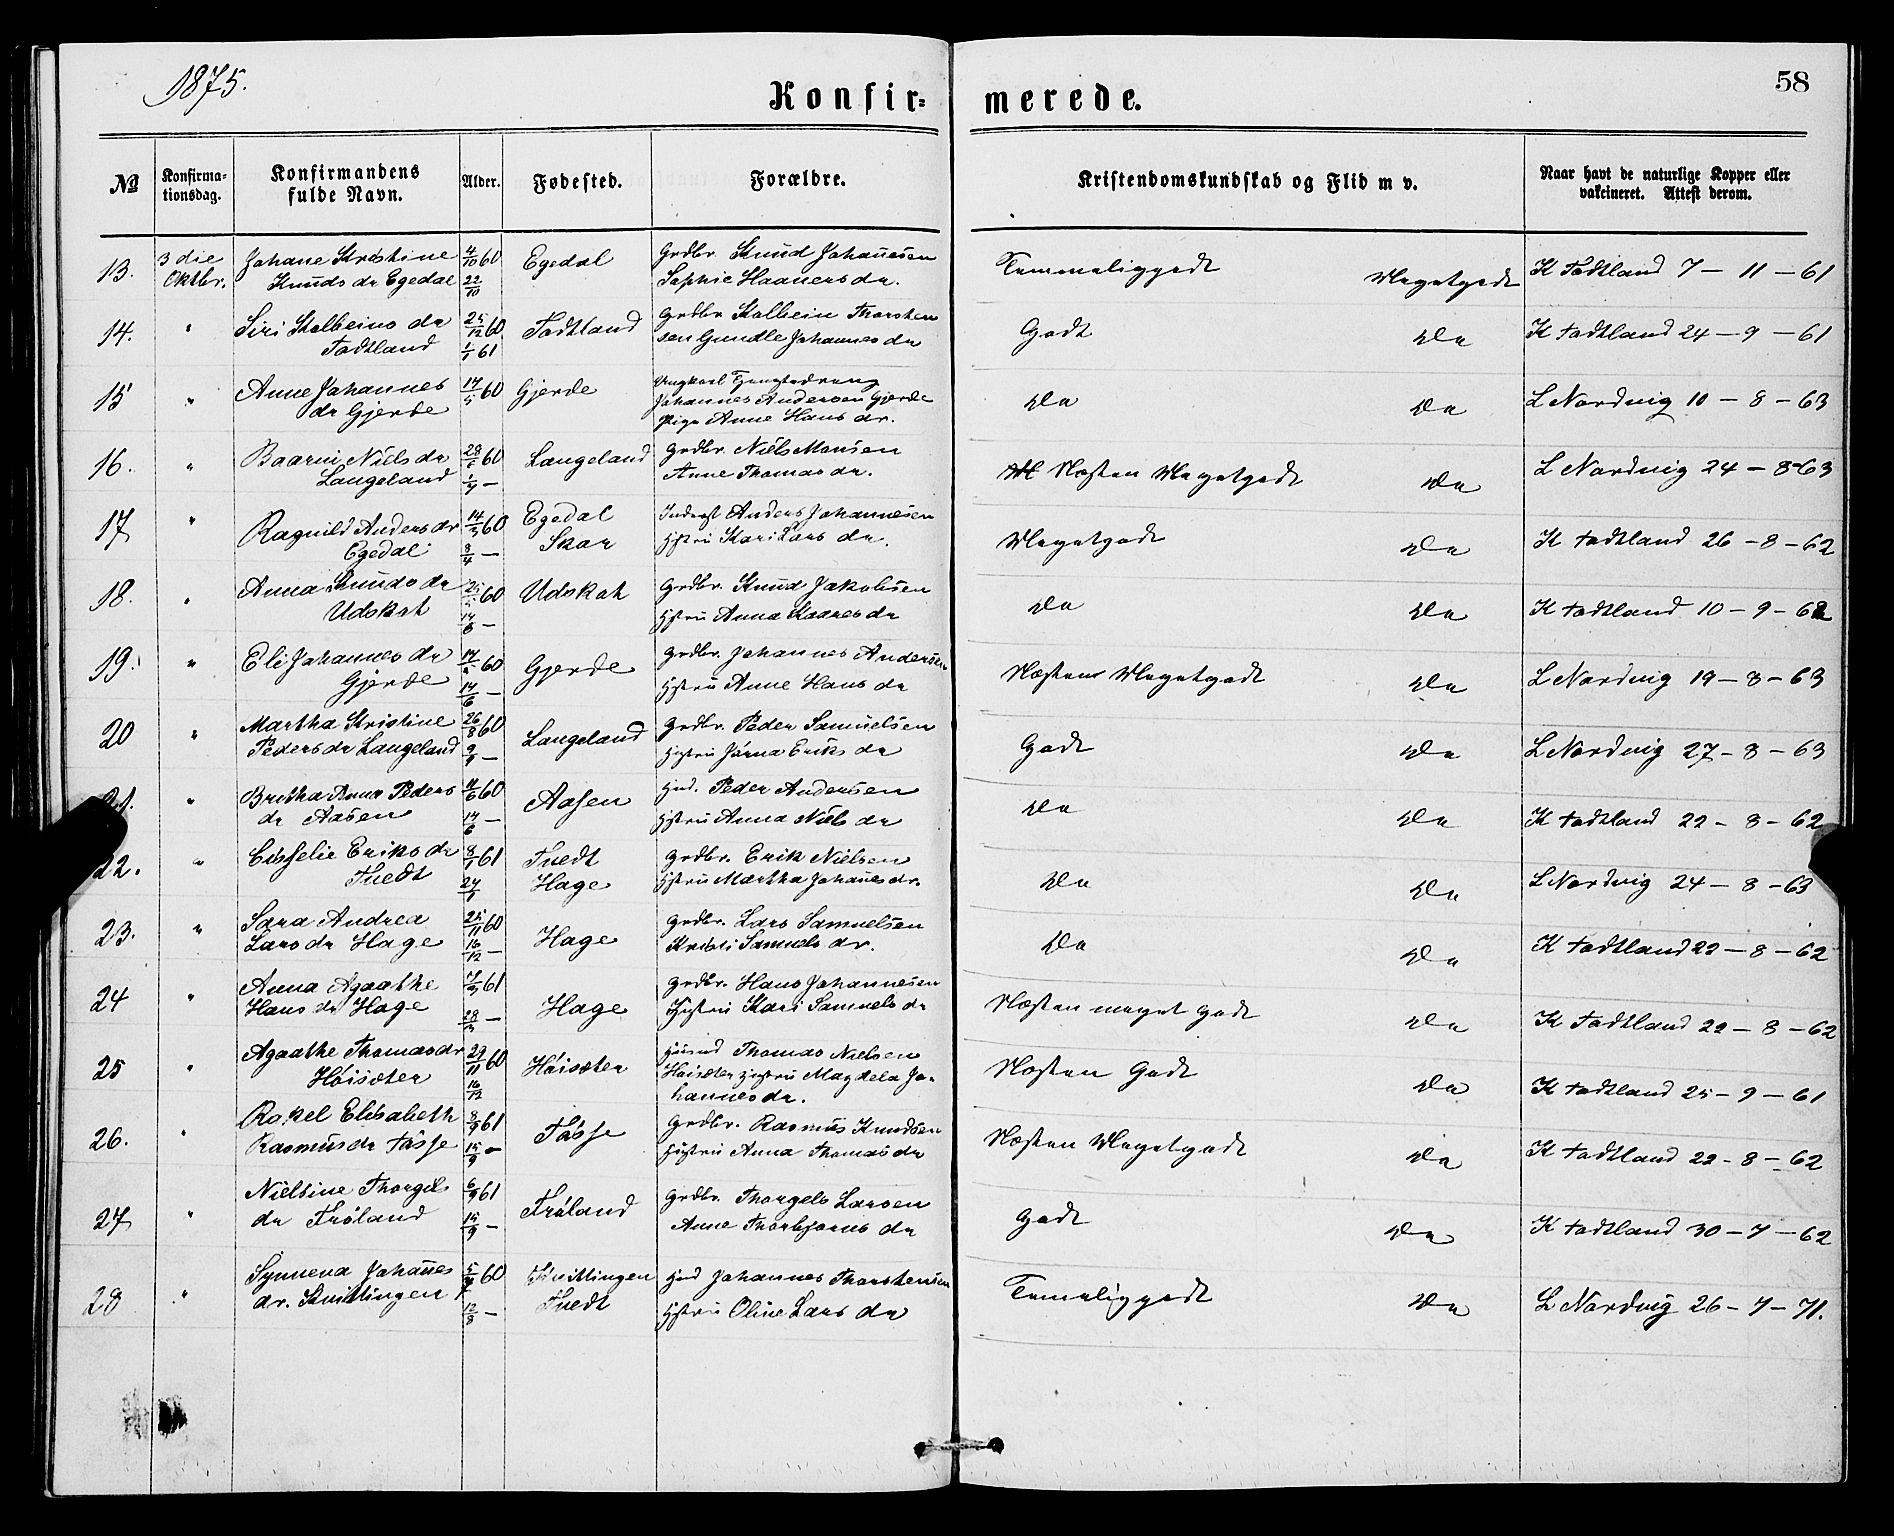 1875.
58
Konfir=
merede.
№
Konfirma-
tionsdag.
Konfirmandens
fulde Navn.
Alder.
Fødested.
Forældre.
Kristendomskundskab og Flid m v.
Naar havt de naturlige Kopper eller
vakcineret. Attest derom.
13. 3die Johane Kristine 4/10 60 Egedal Grdbr. Knud Johannesen Temmeliggodt Megetgodt K Tadtland 7 - 11 - 61
Oktbr. Knuds dr Egedal 22/10 Sophie Haavers dr.
14. " Siri Kolbeins dr 25/12 60 Tadtland Grdbr Kolbein Thorsten Godt Do K Tadtland 24 - 9 - 61
Tadtland 1/1 61 sen Gundle Johannes dr
15 " Anne Johannes 17/5 60 Gjerde Ungkarl Do Do L Nordvig 10 - 8 - 63
dr Gjerde Johannes Andersen Gjerde
Pige Anne Hans dr.
16. " Baarni Niels dr 60 Langeland Grdbr. Niels Monsen Næsten Megetgodt Do L Nordvig 24 - 8 - 63
Langeland Anne Thomas dr.
17 " Ragnild Anders dr 14/3 60 Egedal Inderst Anders Johannesen Megetgodt Do K Tadtland 26 - 8 - 62
Egedal 8/4 - Skar Hstru Kari Lars dr.
18. " Anna Knuds dr 25/5 60 Udskot Grdbr. Knud Jakobsen Do Do K Tadtland 10 - 9 - 62
Udskot 14/6 - Hstru Anna Kaares dr
19. " Eli Johannes dr 60 Gjerde Grdbr. Johannes Andersen Næsten Megetgodt Do L Nordvig 19 - 8 - 63
Gjerde 14/6 - Hstru Anne Hans dr
20 " Martha Kristine 26/8 60 Langeland Grdbr. Peder Samuelsen Godt Do L Nordvig 27 - 8 - 63
Peders dr Langeland 9/9 - Hustru Jórna Eriks dr
21. " Britha Anna Peders 60 Aasen Hmd. Peder Andersen Do Do K Tadtland 22 - 8 - 62
dr Aasen 14/6 - Hstru Anna Niels dr
22. " Eriks dr 8/1 61 Tvedt Grdbr. Erik Nielsen Do Do L Nordvig 24 - 8 - 63
Tvedt 27/1 Hage Hstru Martha Johanes dr.
23. " Sara Andrea 25/11 60 Hage Grdbr. Lars Samuelsen Do Do K Tadtland 22 - 8 - 62
Lars dr Hage 16/12 - Kristi Samuels dr.
24 " Anna Agaathe 7/3 61 Hage Grdbr. Hans Johannesen Næsten meget godt Do K Tadtland 22 - 8 - 62
Hans dr Hage 28/3 - Hustru Kari Samuels dr
25 " Agaathe Thomas dr 29/11 60 Høisæter Husmd Thomas Nielsen Næsten Godt Do K Tadtland 25 - 9 - 61
Høisæter 16/12 Høisæter Hustru Magdela Jo-
hannes dr.
26. " Rakel Elisabeth 8/9 61 Tøsse Grdbr. Rasmus Knudsen Næsten Megetgodt Do K Tadtland 22 - 8 - 62
Rasmus dr Tøsse 15/9 - Hustru Anna Thomas dr
27 " Nielsine Thorgils 6/9 61 Frøland Grdbr. Thorgels Larsen Godt Do K Tadtland 30 - 7 - 62
dr Frøland 15/9 - Anne Thorbjørns dr
28 " Synneva Johanes 60 Kvitlingen Hmd Johannes Thorstensen Temeliggodt Do L Nordvig 26 - 7 - 71.
dr. Kvitlingen 12/8 - Tvedt Hstru Oline Lars dr